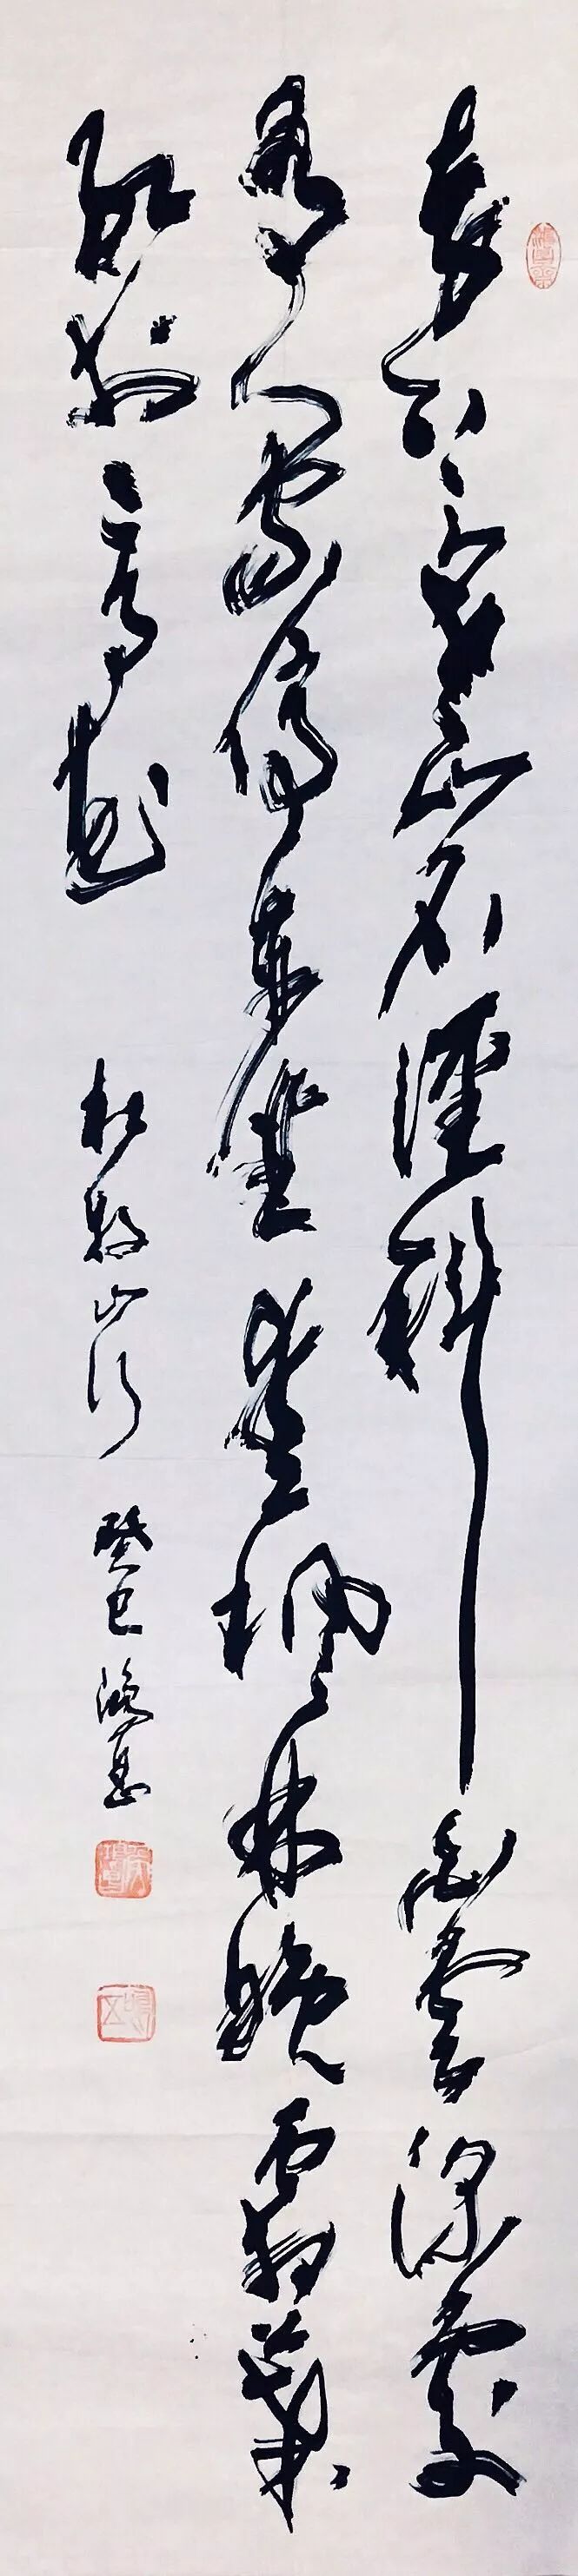 遠上寒山石徑斜白雲深處
有人家停車坐愛楓林晚霜葉
紅於二月花 杜牧山行 癸巳